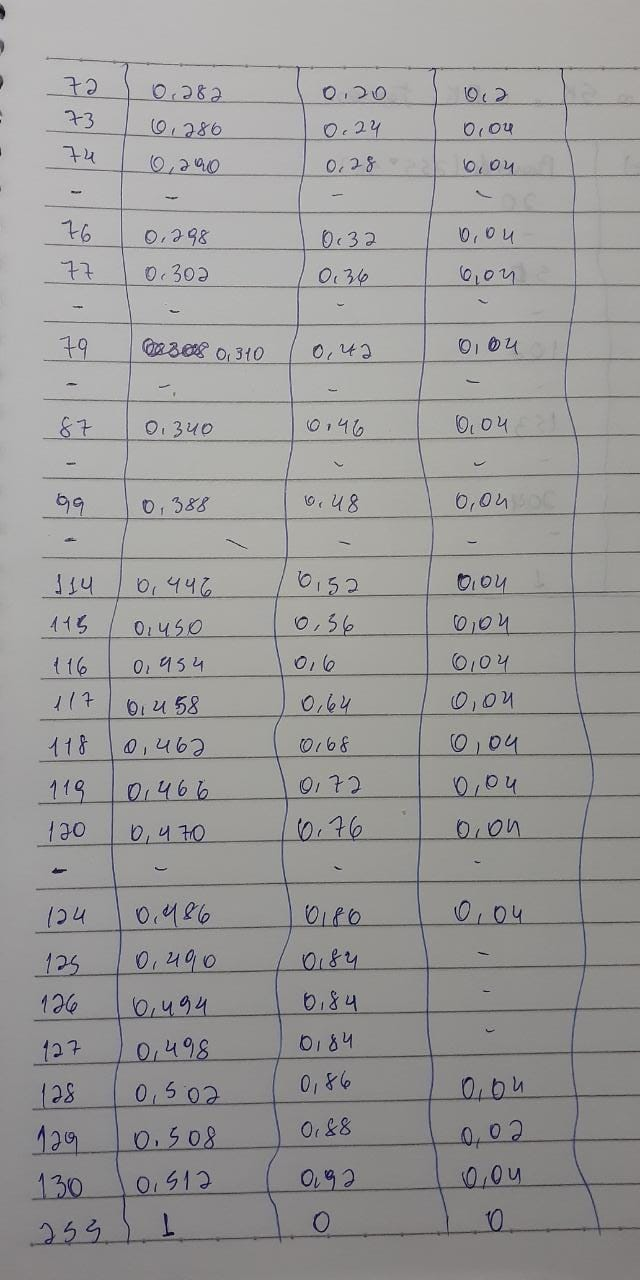 72 0,282 0,20 0,2
73 0,286 0,24 0,04
74 0,290 0,28 0,04
- - - -
76 0,298 0,32 0,04
77 0,302 0,36 0,04
- - - -
79 0,310 0,42 0,04
- - - -
87 0,340 0,46 0,04
- - -
99 0,388 0,48 0,04
- - - -
114 0,446 0,52 0,04
115 0,450 0,56 0,04
116 0,454 0,6 0,04
117 0,458 0,64 0,04
118 0,462 0,68 0,04
119 0,466 0,72 0,04
120 0,470 0,76 0,04
- - - -
124 0,486 0,80 0,04
125 0,490 0,84 -
126 0,494 0,84 -
127 0,498 0,84 -
128 0,502 0,86 0,04
129 0.508 0,88 0,02
130 0,512 0,92 0,04
255 1 0 0